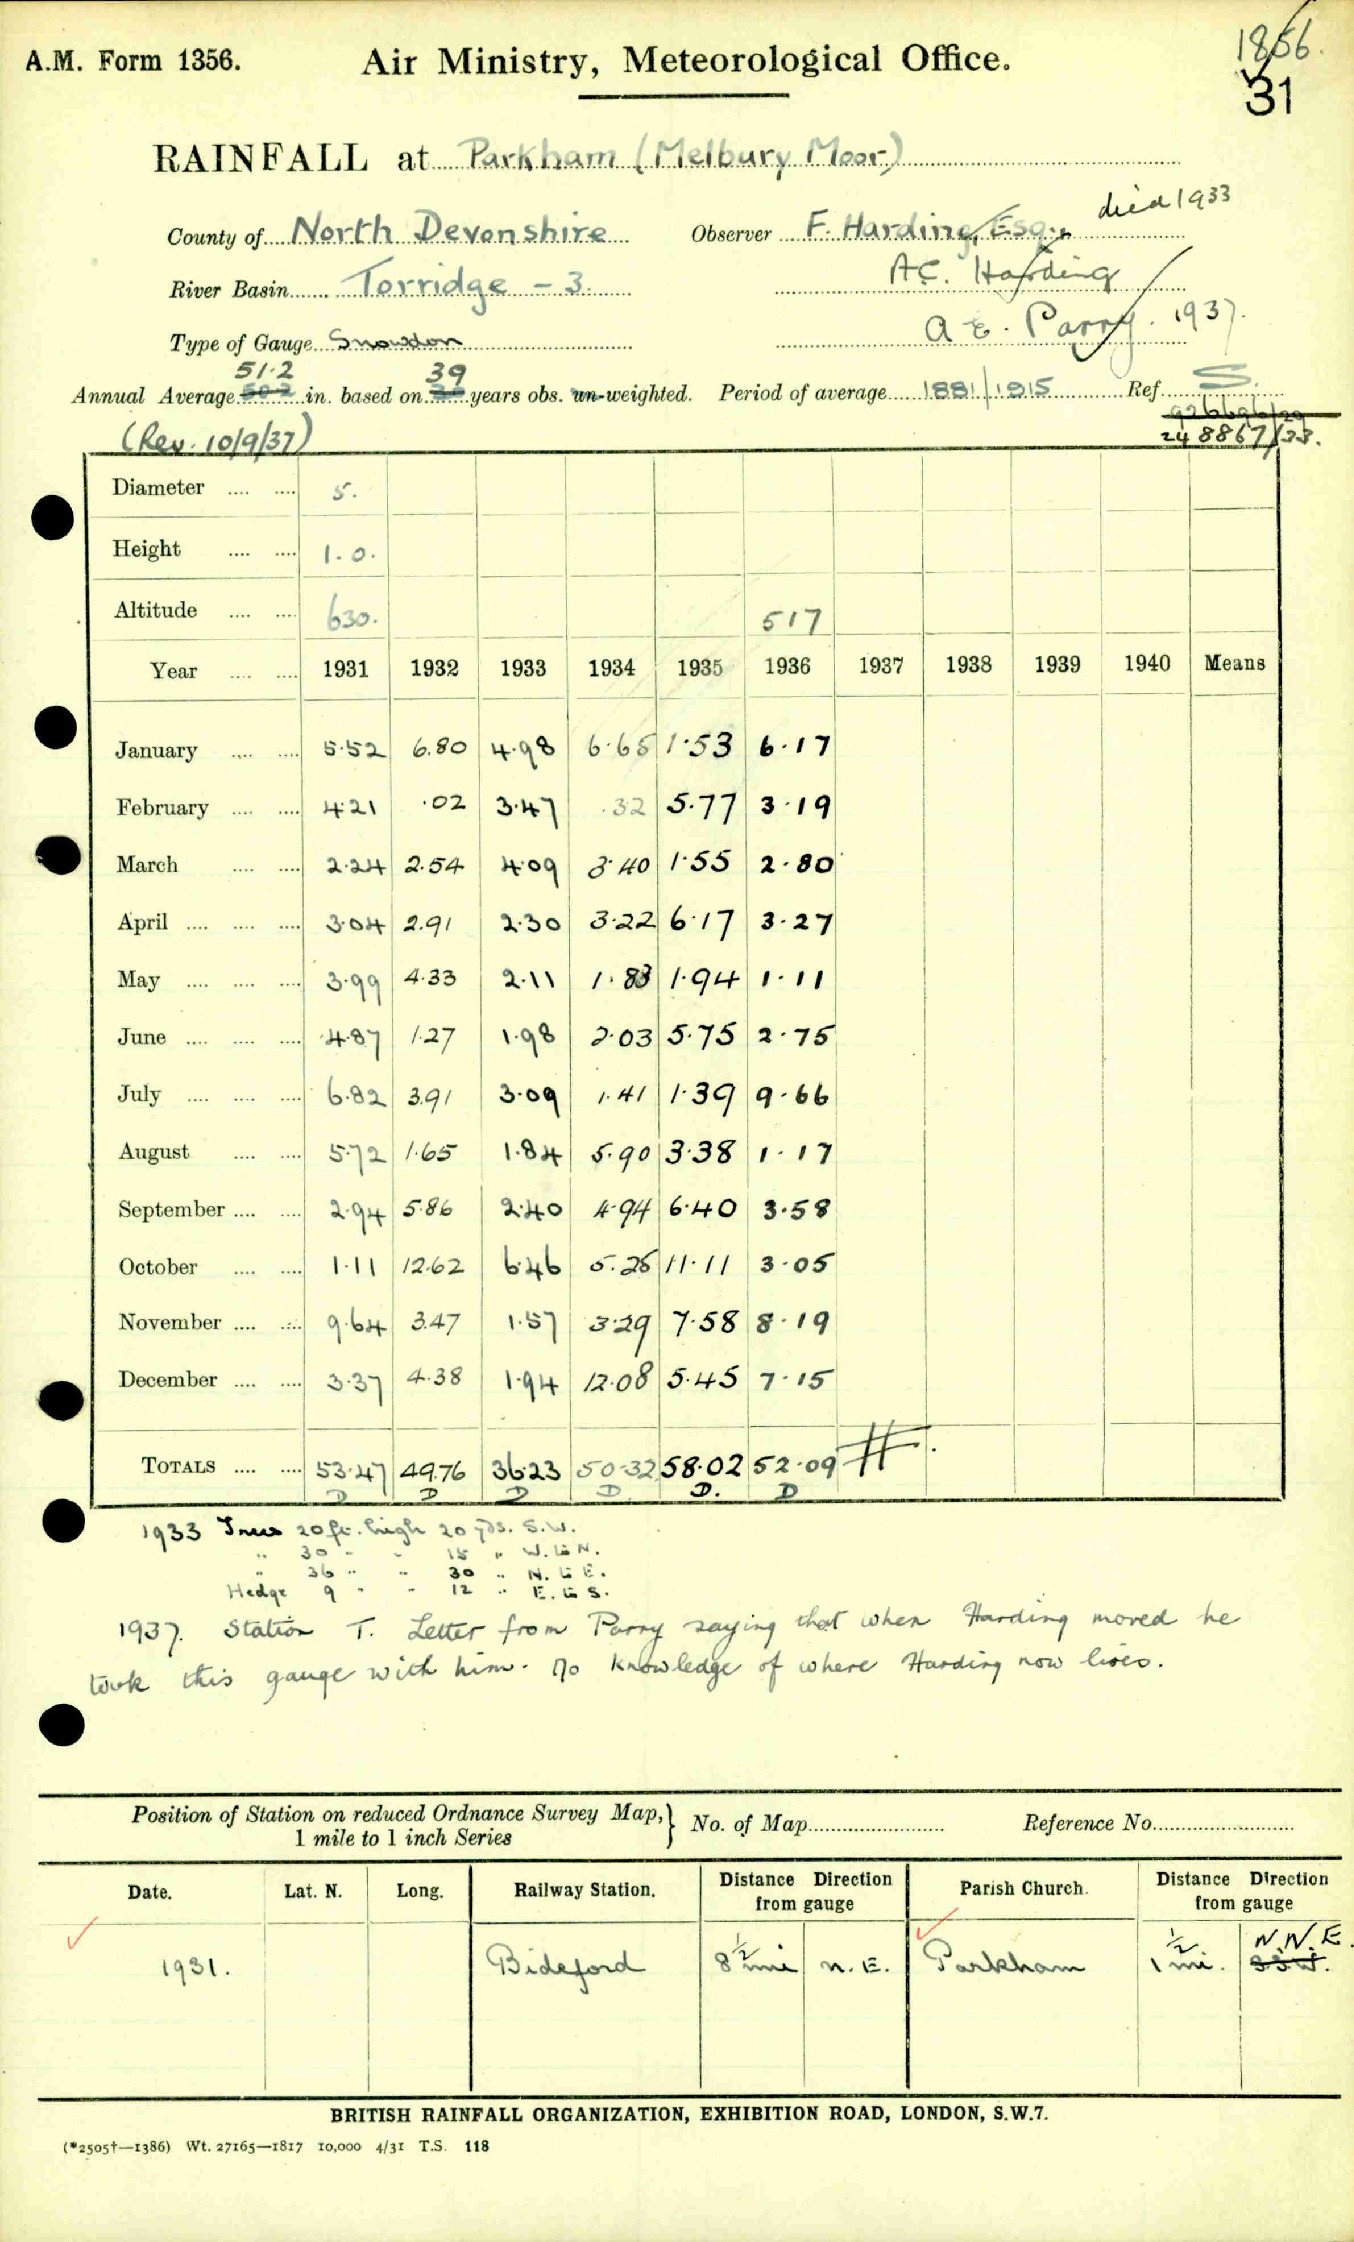 A.M. Form 1356.
Air Ministry, Meteorological Office.
1856.
31
RAINFALL at Parkham (Melbury Moor)
died 1933
County of North Devonshire Observer F. Harding, Esq.,
River Basin Torridge - 3. A.C. Harding
Type of Gauge Snowdon A E. Parry. 1937.
51.2 39
Annual Average in. based on years obs. un-weighted. Period of average 1881/1915 Ref. S.
(Rev. 10/9/37) 248867/33.
Diameter 5.
Height 1.0.
Altitude 630. 517
Year 1931 1932 1933 1934 1935 1936 1937 1938 1939 1940 Means
January 5.52 6.80 4.98 6.65 1.53 6.17
February 4.21 .02 3.47 .32 5.77 3.19
March 2.24 2.54 4.09 3.40 1.55 2.80
April 3.04 2.91 2.30 3.22 6.17 3.27
May 3.99 4.33 2.11 1.83 1.94 1.11
June 4.87 1.27 1.98 2.03 5.75 2.75
July 6.82 3.91 3.09 1.41 1.39 9.66
August 5.72 1.65 1.84 5.90 3.38 1.17
September 2.94 5.86 2.40 4.94 6.40 3.58
October 1.11 12.62 6.46 5.25 11.11 3.05
November 9.64 3.47 1.57 3.29 7.58 8.19
December 3.37 4.38 1.94 12.08 5.45 7.15
TOTALS 53.47 49.76 36.23 50.32 58.02 52.09
D D D D D. D
1933 Trees 20 ft. high 20 yds. S.W.
" 30 " " 15 " W. to N.
" 36 " " 30 " N. to E.
Hedge 9 " " 12 " E. to S.
1937. Station T. Letter from Parry saying that when Harding moved he
took this gauge with him. No knowledge of where Harding now lives.
Position of Station on reduced Ordnance Survey Map, 1 mile to 1 inch Series } No. of Map Reference No.
Date. Lat. N. Long. Railway Station. Distance Direction from gauge Parish Church. Distance Direction from gauge
1931. Bideford 8 1/2 mi N. E. Parkham 1 1/2 mi. N.N.E.
BRITISH RAINFALL ORGANIZATION, EXHIBITION ROAD, LONDON, S.W.7.
(*2505†—1386) Wt. 27165—1817 10,000 4/31 T.S. 118